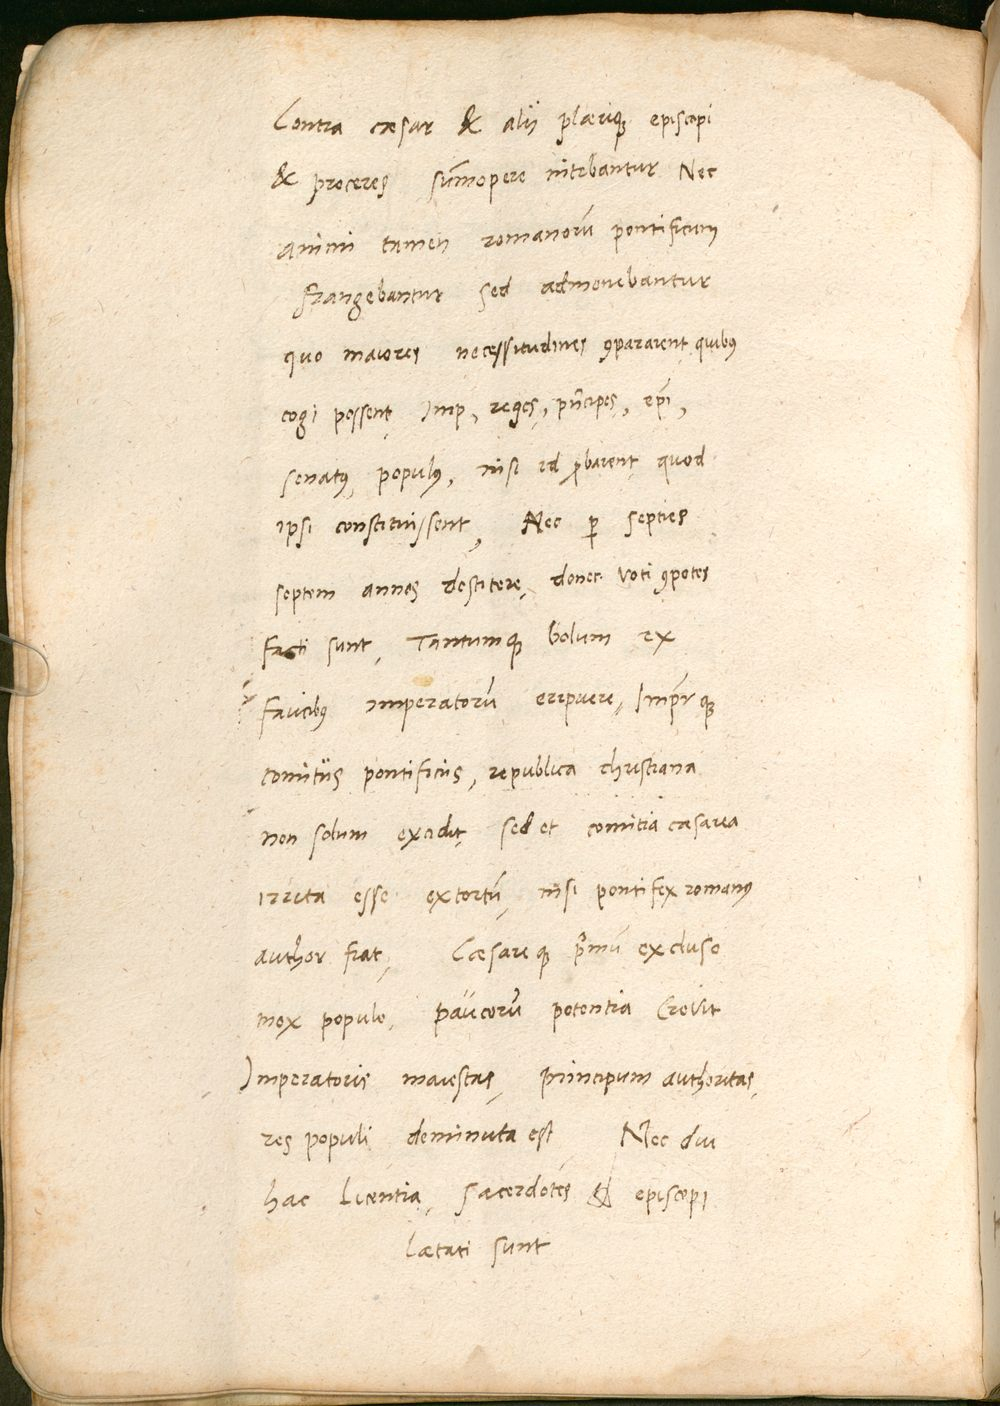 Contra cæsar & alij plæriq; episcopi
& proceres sūmopere nitebantur Nec
animi tamen romanorū pontificum
frangebantur sed admonebantur
quo maiores necessitudines ꝯpararent quibus
cogi possent Imp, reges, prīcipes, epī,
senatus, populus, nisi id ꝓbarent quod
ipsi constituissent, Nec ꝑ septies
septem annos destitere, donec voti ꝯpotes
facti sunt, Tantumq; bolum ex
faucibus imperatorū eripuere,
comitiis pontificiis, republica christiana
non solum excidit, sed et comitia cæsarea
irrita esse extortū, nisi pontifex romanus
author fiat, Cæsareq; primū excluso
mox populo, paucorū potentia crevit
Imperatoris maiestas, principum authoritas,
res populi deminuta est Nec diu
hac licentia, sacerdotes & episcopi
lætati sunt